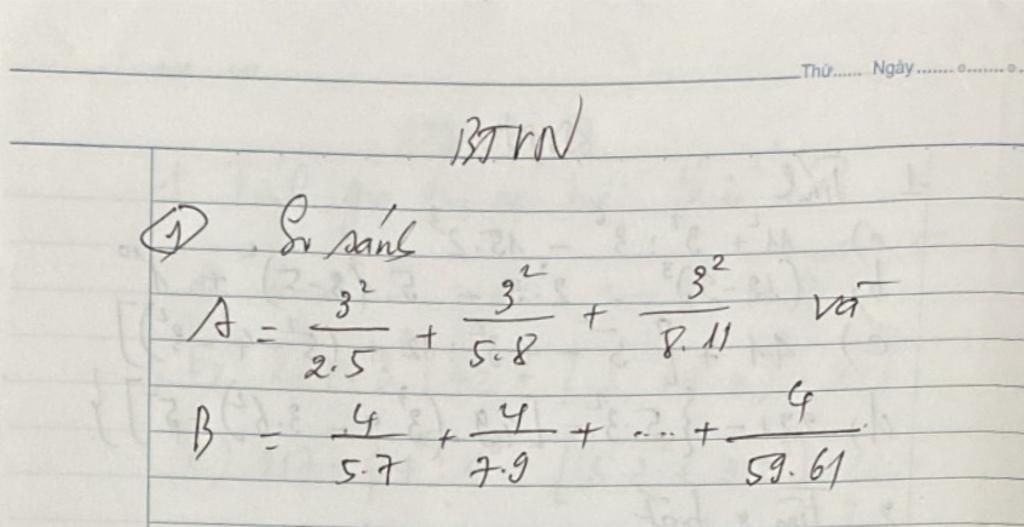 Thứ...... Ngày.......o.......o.
BTVN
① So sánh
A = 3²/2.5 + 3²/5.8 + 3²/8.11 và
B = 4/5.7 + 4/7.9 + .... + 4/59.61